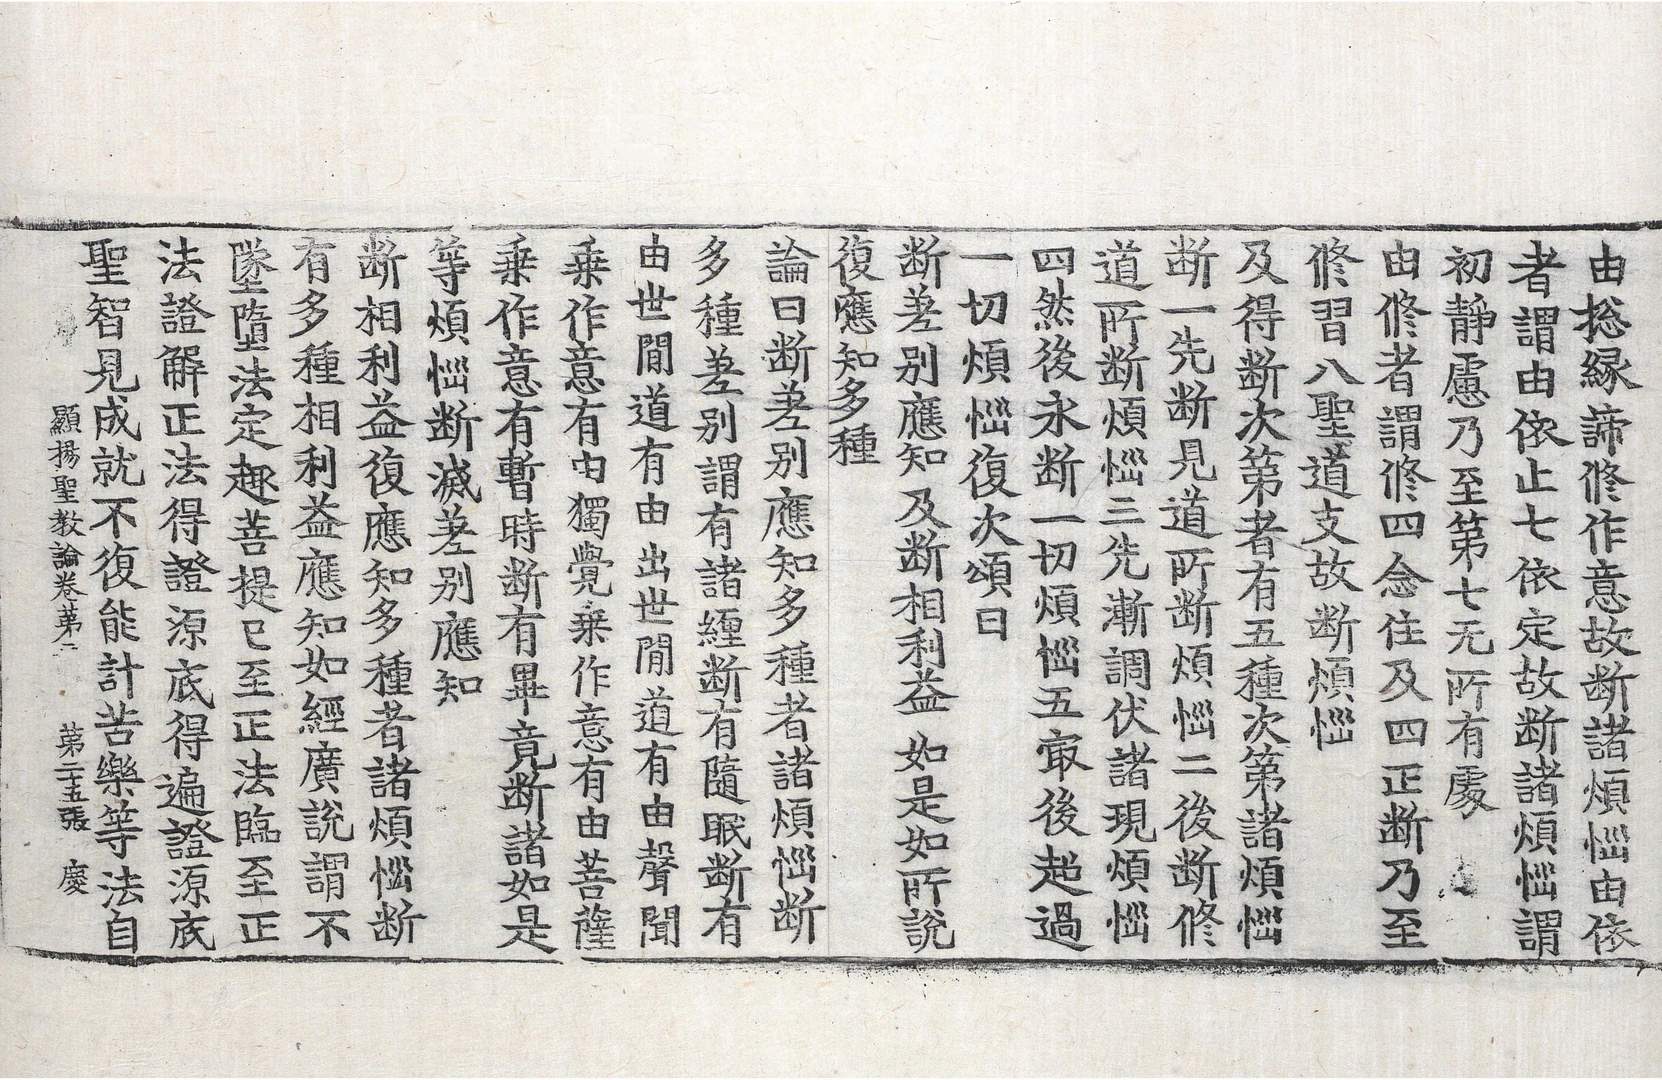 由捴縁諦修作意故断諸煩惱由依
者謂由依止七依定故断諸煩惱謂
初靜慮乃至第七无所有處
由修者謂修四念住及四正断乃至
修習八聖道支故断煩惱
及得断次第者有五種次第諸煩惱
断一先断見道所断煩惱二後断修
道所断煩惱三先漸調伏諸現煩惱
四然後永断一切煩惱五㝡後超過
一切煩惱復次頌曰
断差別應知及断相利益如是如所說
復應知多種
論曰断差別應知多種者諸煩惱断
多種差別謂有諸纏断有隨眠断有
由世間道有由出世間道有由聲聞
乗作意有由獨覺乗作意有由菩薩
乗作意有暫時断有畢竟断諸如是
等煩惱断滅差別應知
断相利益復應知多種者諸煩惱断
有多種相利益應知如經廣說謂不
墜墮法定趣菩提已至正法臨至正
法證解正法得證源底得遍證源底
聖智見成就不復能計苦樂等法自
顯揚聖教論卷苐二 苐二十五張 慶